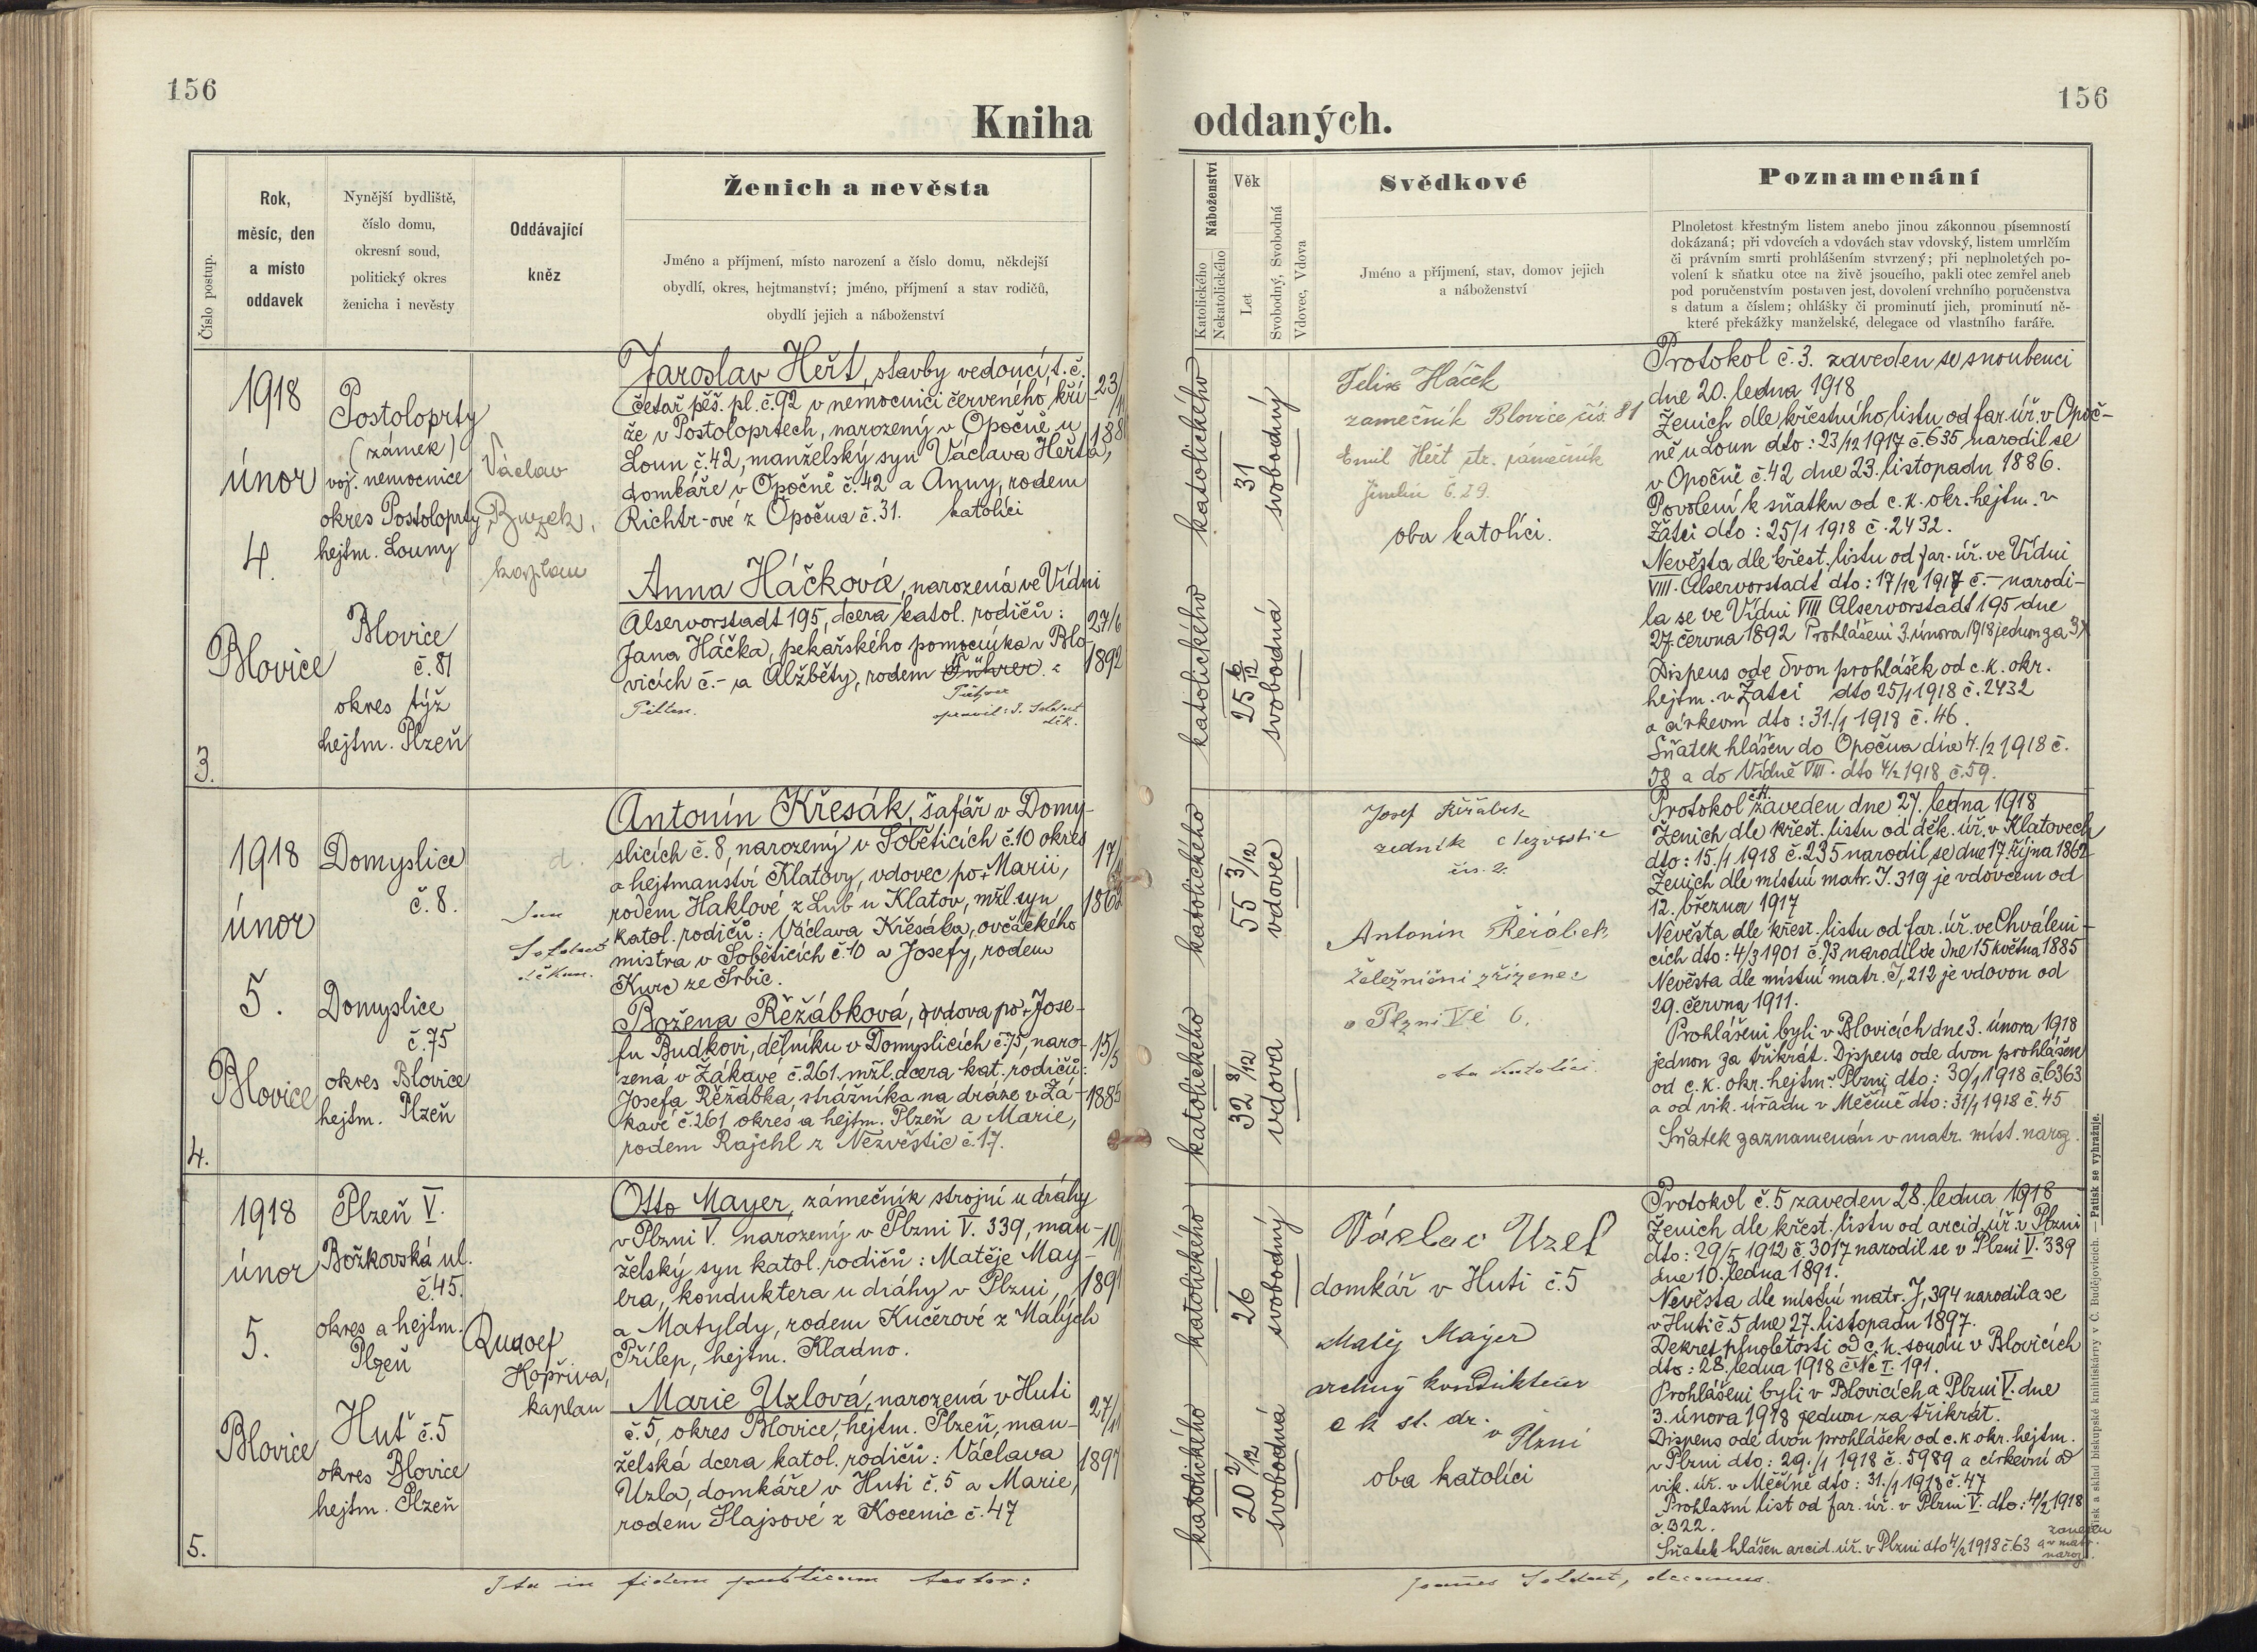 156
156
Kniha oddaných.
Číslo postup.
Rok,
měsíc, den
a místo
oddavek
Nynější bydliště,
číslo domu,
okresní soud,
politický okres
ženicha i nevěsty
Oddávající
kněz
Ženich a nevěsta
Jméno a příjmení, místo narození a číslo domu, někdejší
obydlí, okres, hejtmanství; jméno, příjmení a stav rodičů,
obydlí jejich a náboženství
Náboženství
Katolického
Nekatolického
Věk
Let
Svobodný, Svobodná
Vdovec, Vdova
Svědkové
Jméno a příjmení, stav, domov jejich
a náboženství
Poznamenání
Plnoletost křestným listem anebo jinou zákonnou písemností
dokázaná; při vdovcích a vdovách stav vdovský, listem umrlčím
či právním smrti prohlášením stvrzený; při neplnoletých po-
volení k sňatku otce na živě jsoucího, pakli otec zemřel aneb
pod poručenstvím postaven jest, dovolení vrchního poručenstva
s datum a číslem; ohlášky či prominutí jich, prominutí ně-
které překážky manželské, delegace od vlastního faráře.
3.
1918
únor
4.
Blovice
Postoloprty
(zámek)
voj. nemocnice
okres Postoloprty
hejtm. Louny
Blovice
č. 81
okres týž
hejtm. Plzeň
Václav
kaplan
Jaroslav Heřt, stavby vedoucí, t. č.
četař pěš. pl. č. 92 v nemocnici červeného kří-
že v Postoloprtech, narozený v Opočně u
Loun č. 42, manželský syn Václava Heřta,
domkáře v Opočně č. 42 a Anny, rodem
Richtr-ové z Opočna č. 31. katolíci
23/11
188
Anna Háčková, narozená ve Vídni
Alservorstadt 195, dcera katol. rodičů:
Jana Háčka, pekařského pomocníka v Blo-
vicích č.- a Alžběty, rodem Führer z
opravil: J. Soldát
děk.
27/6
1892
katolického
31
svobodný
katolického
25 6/12
svobodná
Felix Háček
zámečník Blovice čís. 81
Emil Heřt str. zámečník
č. 29.
oba katolíci.
Protokol č. 3. zaveden se snoubenci
dne 20. ledna 1918
Ženich dle křestního listu od far. úř. v Opoč-
ně u Loun dto: 23/12 1917 č. 635 narodil se
v Opočně č. 42 dne 23. listopadu 1886.
Povolení k sňatku od c. k. okr. hejtm. v
Žatci dto: 25/1 1918 č. 2432.
Nevěsta dle křest. listu od far. úř. ve Vídni
VIII. Alservorstadt dto: 17/12 1917 č.- narodi-
la se ve Vídni VIII Alservorstadt 195 dne
27. června 1892 Prohlášeni 3. února 1918 jednou za 3x
Dispens ode dvou prohlášek od c. k. okr.
hejtm. v Žatci dto 25/1 1918 č. 2432
a církevní dto: 31./1 1918 č. 46.
Sňatek hlášen do Opočna dne 4./2 1918 č.
58 a do Vídně VIII. dto 4/2 1918 č. 59.
4.
1918
únor
5.
Blovice
Domyslice
č. 8.
Domyslice
č. 75
okres Blovice
hejtm. Plzeň
Jan
Soldát
děkan.
Antonín Křesák, šafář v Domy-
slicích č. 8, narozený v Soběticích č. 10 okres
a hejtmanství Klatovy, vdovec po + Marii,
rodem Haklové z Lub u Klatov, mžl. syn
katol. rodičů: Václava Křesáka, ovčáckého
mistra v Soběticích č. 10 a Josefy, rodem
Kurc ze Srbic.
17/
1862
Božena Řežábková, vdova po + Jose-
fu Budkovi, dělníku v Domyslicích č. 75, naro-
zená v Žákavě č. 261 mžl. dcera kat. rodičů:
Josefa Řežábka, strážníka na dráze v Žá-
kavě č. 261 okres a hejtm. Plzeň a Marie,
rodem Rajchl z Nezvěstic č. 17.
15/5
1885
katolického
55 3/12
vdovec
katolického
32 8/12
vdova
Josef Řeřábek
zedník Nezvěstic
čís. 2.
Antonín Řeřábek
železniční zřízenec
v Plzni V č 6.
oba katolíci.
Protokol č. 4. zaveden dne 27. ledna 1918
Ženich dle křest. listu od děk. úř. v Klatovech
dto: 15./1 1918 č. 235 narodil se dne 17. října 1862
Ženich dle místní matr. J. 319 je vdovcem od
12. března 1917
Nevěsta dle křest. listu od far. úř. ve Chváleni-
cích dto: 4/3 1901 č. 93 narodil se dne 15 května 1885
Nevěsta dle místní matr. J, 212 je vdovou od
29. června 1911.
Prohlášeni byli v Blovicích dne 3. února 1918
jednou za třikrát. Dispens ode dvou prohlášen
od c. k. okr. hejtm. v Plzni dto: 30/1 1918 č. 6363
a od vik. úřadu v Měčíně dto: 31/1 1918 č. 45
Sňatek zaznamenán v matr. míst. naroz.
5.
1918
únor
5.
Blovice
Plzeň V.
Božkovská ul.
č. 45.
okres a hejtm.
Plzeň
Huť č. 5
okres Blovice
hejtm. Plzeň
Rudolf
Kopřiva,
kaplan
Otto Mayer, zámečník strojní u dráhy
v Plzni V. narozený v Plzni V. 339, man-
želský syn katol. rodičů: Matěje May-
era, konduktera u dráhy v Plzni,
a Matyldy, rodem Kučerové z Malých
Přílep, hejtm. Kladno.
10/
1891
Marie Uzlová, narozená v Huti
č. 5, okres Blovice, hejtm. Plzeň, man-
želská dcera katol. rodičů: Václava
Uzla, domkáře v Huti č. 5 a Marie,
rodem Slajsové z Kocenic č. 47
27/11
1897
katolického
26
svobodný
katolického
20 2/12
svobodná
Václav Uzel
domkář v Huti č. 5
Matěj Mayer
vrchný kondukteur
c k st. dr. v Plzni
oba katolíci
Protokol č. 5 zaveden 28. ledna 1918
Ženich dle křest. listu od arcid. úř. v Plzni
dto: 29/5 1912 č. 3017 narodil se v Plzni V. 339
dne 10. ledna 1891.
Nevěsta dle místní matr. J, 394 narodila se
v Huti č. 5 dne 27. listopadu 1897.
Dekret plnoletosti od c. k. soudu v Blovicích
dto: 28. ledna 1918 č. Nc I. 191.
Prohlášeni byli v Blovicích a Plzni V. dne
3. února 1918 jednou za třikrát.
Dispens ode dvou prohlášek od c. k. okr. hejtm.
v Plzni dto: 29./1 1918 č. 5989 a církevní od
vik. úř. v Měčíně dto: 31./1 1918 č. 47
Prohlazní list od far. úř. v Plzni V. dto: 4/2 1918
č. 322.
Sňatek hlášen arcid. úř. v Plzni dto 4/2 1918 č. 63 zanesen
a v matr.
naroz.
Ita in fidem publicam testor:
Joannes Soldát, decanus.
Tisk a sklad biskupské knihtiskárny v Č. Budějovicích. — Patisk se vyhražuje.